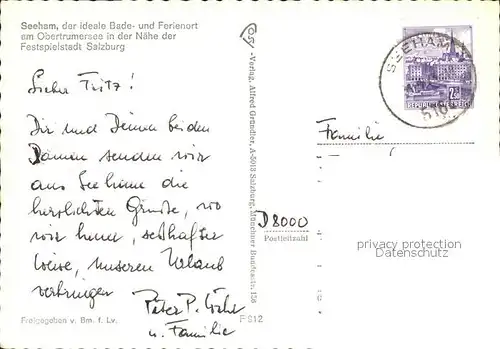 Seeham, der ideale Bade- und Ferienort
am Obertrumersee in der Nähe der
Festspielstadt Salzburg
Lieber Fritz!
Dir und Deinen beiden
Damen senden wir
aus Seeham die
herzlichsten Grüße, wo
wir heuer, seßhafter
Weise, unseren Urlaub
verbringen
Peter P.
u. Familie
Freigegeben v. Bm. f. Lv.
F 912
-Verlag, Alfred Gründler, A-5013 Salzburg, Münchner Bundesstr. 156
SEEHAM
2.50
REPUBLIK ÖSTERREICH
Familie
D 8000
Postleitzahl
privacy protection
Datenschutz